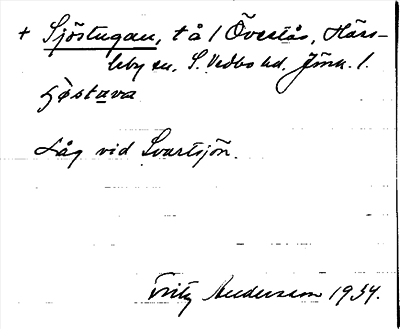 + Sjöstugan, t å / Överlås, Härs-
leby sn. S. Vedbo hd. Jönk. l.
sjöstava
Låg vid Svartsjön.
Fritz Andersson 1934.